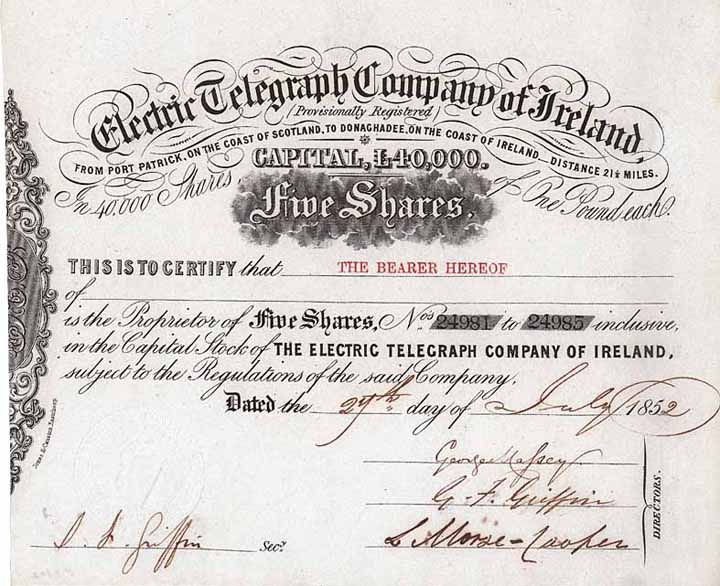 Electric Telegraph Company of Ireland,
(Provisionally Registered)
FROM PORT PATRICK, ON THE COAST OF SCOTLAND, TO DONAGHADEE, ON THE COAST OF IRELAND DISTANCE 21½ MILES.
CAPITAL, £40,000.
In 40,000 Shares of One Pound each.
Five Shares.
THIS IS TO CERTIFY that THE BEARER HEREOF
of
is the Proprietor of Five Shares, Nos 24981 to 24985 inclusive,
in the Capital Stock of THE ELECTRIC TELEGRAPH COMPANY OF IRELAND,
subject to the Regulations of the said Company.
Dated the 27th day of July 1852
George Massey
G. F. Griffin
L Morse-Cooper
DIRECTORS.
Griffin Secy.